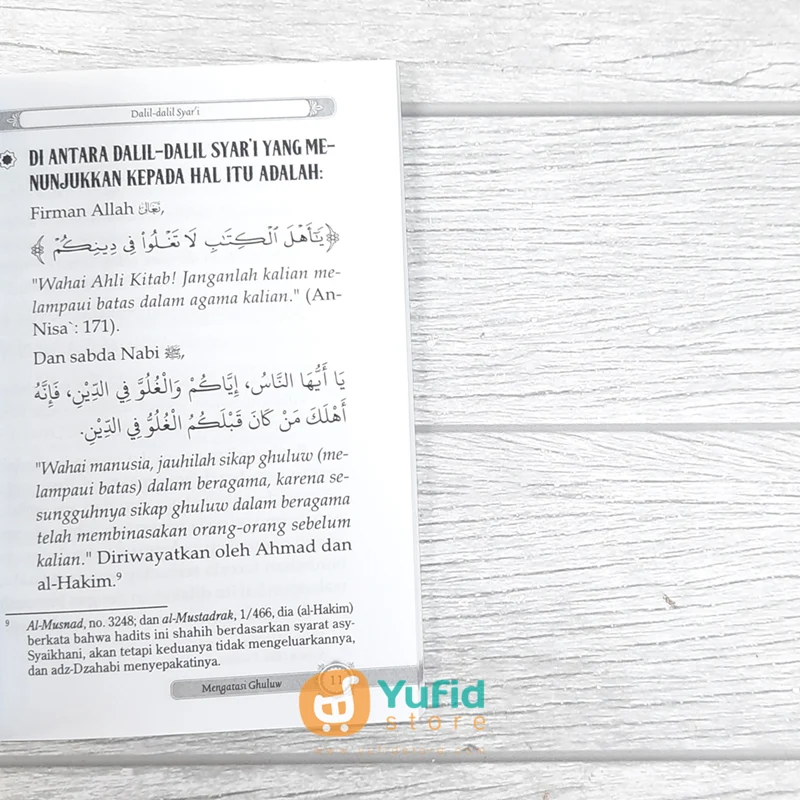 Dalil-dalil Syar'i
DI ANTARA DALIL-DALIL SYAR'I YANG ME-
NUNJUKKAN KEPADA HAL ITU ADALAH:
Firman Allah تعالى,
﴿يَٰٓأَهْلَ ٱلْكِتَٰبِ لَا تَغْلُوا۟ فِى دِينِكُمْ﴾
"Wahai Ahli Kitab! Janganlah kalian me-
lampaui batas dalam agama kalian." (An-
Nisa`: 171).
Dan sabda Nabi ﷺ,
يَا أَيُّهَا النَّاسُ، إِيَّاكُمْ وَالْغُلُوَّ فِي الدِّيْنِ، فَإِنَّهُ
أَهْلَكَ مَنْ كَانَ قَبْلَكُمُ الْغُلُوُّ فِي الدِّيْنِ.
"Wahai manusia, jauhilah sikap ghuluw (me-
lampaui batas) dalam beragama, karena se-
sungguhnya sikap ghuluw dalam beragama
telah membinasakan orang-orang sebelum
kalian." Diriwayatkan oleh Ahmad dan
al-Hakim.⁹
⁹ Al-Musnad, no. 3248; dan al-Mustadrak, 1/466, dia (al-Hakim)
berkata bahwa hadits ini shahih berdasarkan syarat asy-
Syaikhani, akan tetapi keduanya tidak mengeluarkannya,
dan adz-Dzahabi menyepakatinya.
Mengatasi Ghuluw 11
Yufid
store